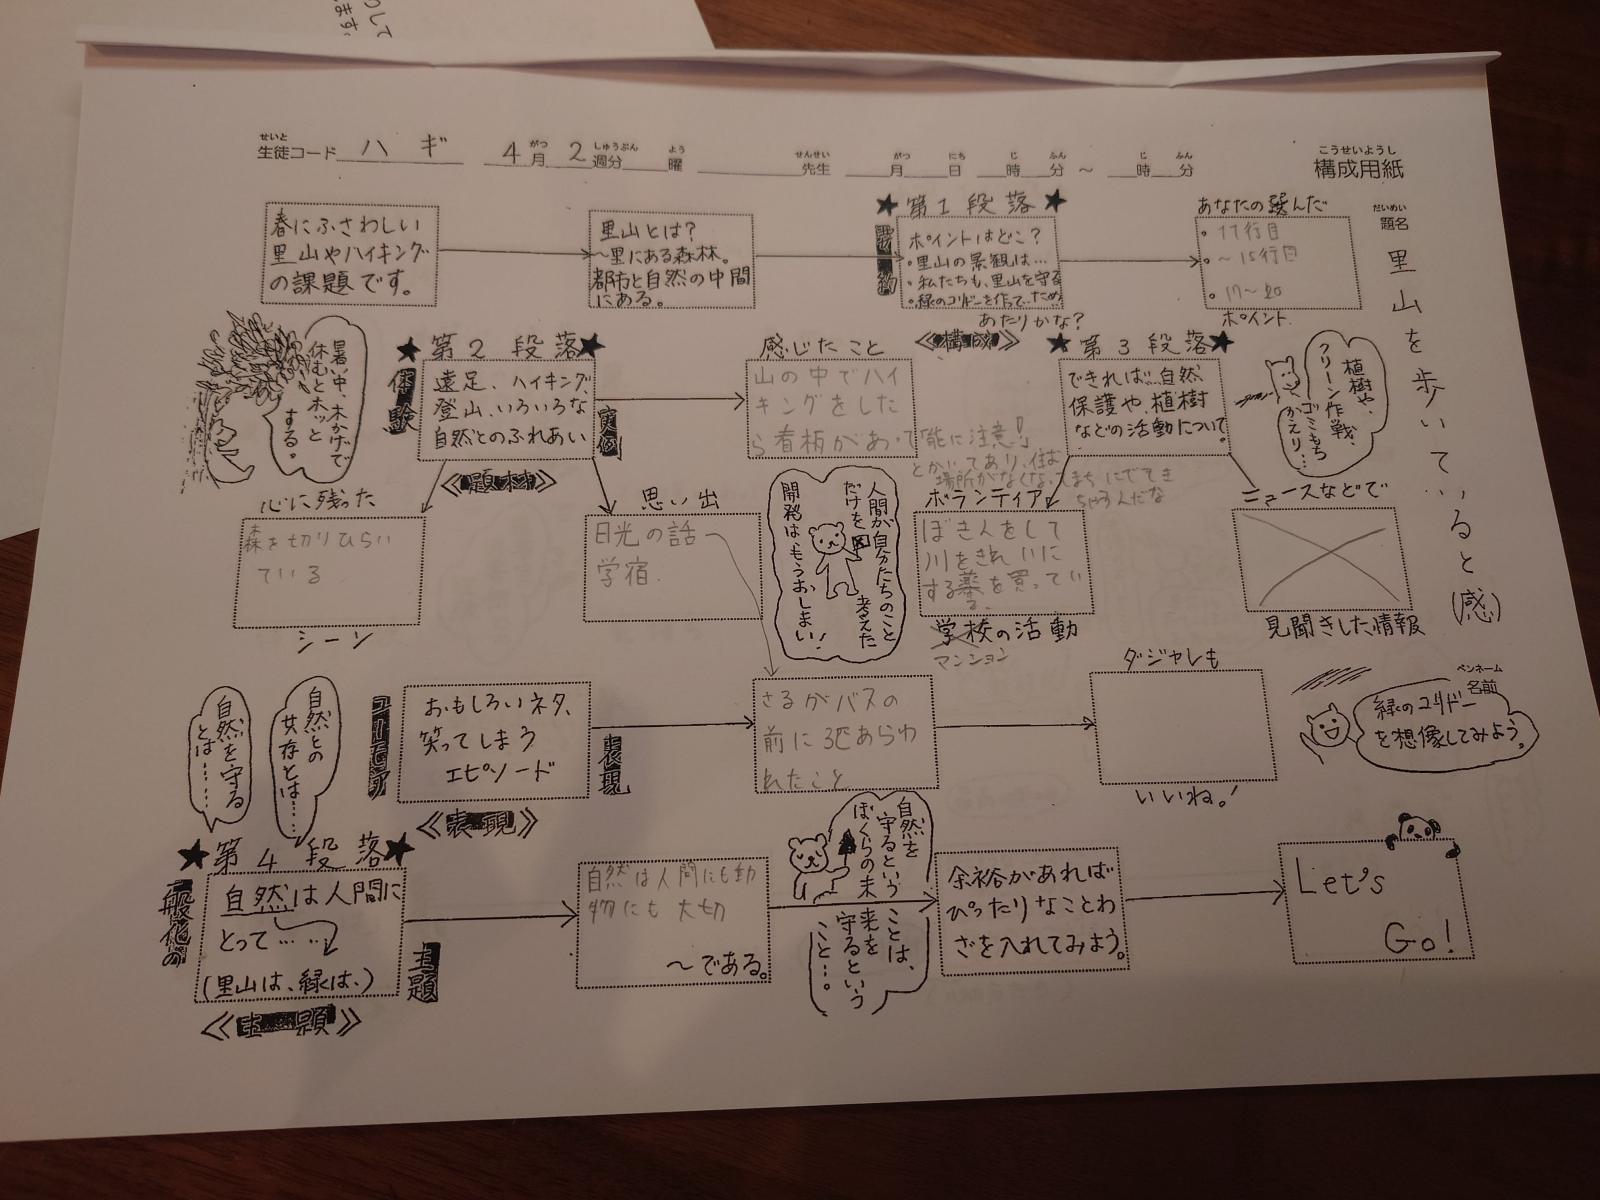 して
ます。
せいと
生徒コード ハギ 4月 2週分 曜 先生 月 日 時 分 ～ 時 分
がつ しゅうぶん よう せんせい がつ にち じ ふん じ ふん
こうせいようし
構成用紙
だいめい
題名
里山を歩いていると(感)
ペンネーム
名前
春にふさわしい
里山やハイキング
の課題です。
里山とは？
～里にある森林。
都市と自然の中間
にある。
★第1段落★
要約
ポイントはどこ？
・里山の景観は…
・私たちも、里山を守る
・緑のコリドーを作って…ため
あたりかな？
《構成》
あなたの選んだ
・11行目
・～15行目
・17～20
ポイント
暑い中、木かげで
休むとホッと
する。
★第2段落★
体験
遠足、ハイキング、
登山、いろいろな
自然とのふれあい
実例
《題材》
感じたこと
山の中でハイ
キングをした
ら看板があって「熊に注意！」
とかいてあり、住む
場所がなくなってまちにでてき
ちゃうんだな
★第3段落★
できれば…自然
保護や、植樹
などの活動について。
植樹や、
クリーン作戦、
ゴミもち
かえり…
心に残った
森を切りひらい
ている
シーン
思い出
日光の話
学宿
人間が自分たちのこと
だけを考えた
開発は、もうおしまい！
ボランティア
ぼき人をして
川をきれいに
する薬を買ってい
る。
学校の活動
マンション
ニュースなどで
見聞きした情報
自然との
共存とは……
自然を守る
とは……
ユーモア
おもしろいネタ、
笑ってしまう
エピソード
表現
《表現》
さるがバスの
前に3匹あらわ
れたこと
ダジャレも
いいね。！
緑のコリドー
を想像してみよう。
★第4段落★
一般化の
自然は人間に
とって……
(里山は、緑は、)
主題
《主題》
自然は人間にも動
物にも大切
～である。
自然を
守るという
ことは、
ぼくらの未
来を
守るという
こと…。
余裕があれば
ぴったりなことわ
ざを入れてみよう。
Let's
Go!